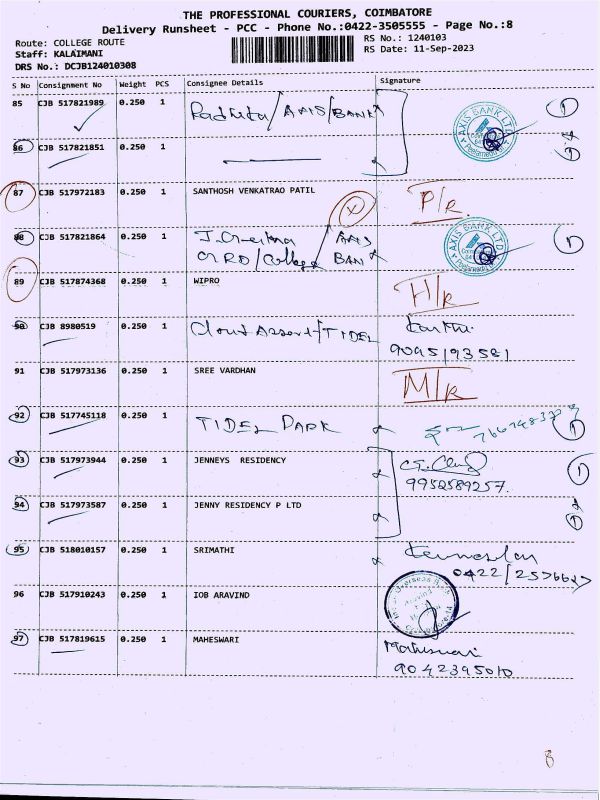 THE PROFESSIONAL COURIERS, COIMBATORE
Delivery Runsheet - PCC - Phone No.:0422-3505555 - Page No.:8
Route: COLLEGE ROUTE
RS No.: 1240103
Staff: KALAIMANI
RS Date: 11-Sep-2023
DRS No.: DCJB124010308
S No Consignment No Weight PCS Consignee Details Signature
85 CJB 517821989 0.250 1 /AXIS/BANK AXIS BANK LTD 1
86 CJB 517821851 0.250 1 1
87 CJB 517972183 0.250 1 SANTHOSH VENKATRAO PATIL P/R
88 CJB 517821864 0.250 1 AXIS AXIS BANK LTD 1
/College BANK
89 CJB 517874368 0.250 1 WIPRO H/R
90 CJB 8980519 0.250 1 Cloud Assert/TIDEL
9095193581
91 CJB 517973136 0.250 1 SREE VARDHAN M/R
92 CJB 517745118 0.250 1 TIDEL PARK 1
93 CJB 517973944 0.250 1 JENNEYS RESIDENCY 1
9952589257.
94 CJB 517973587 0.250 1 JENNY RESIDENCY P LTD 1
95 CJB 518010157 0.250 1 SRIMATHI
96 CJB 517910243 0.250 1 IOB ARAVIND
97 CJB 517819615 0.250 1 MAHESWARI Maheswari
9042395010
8